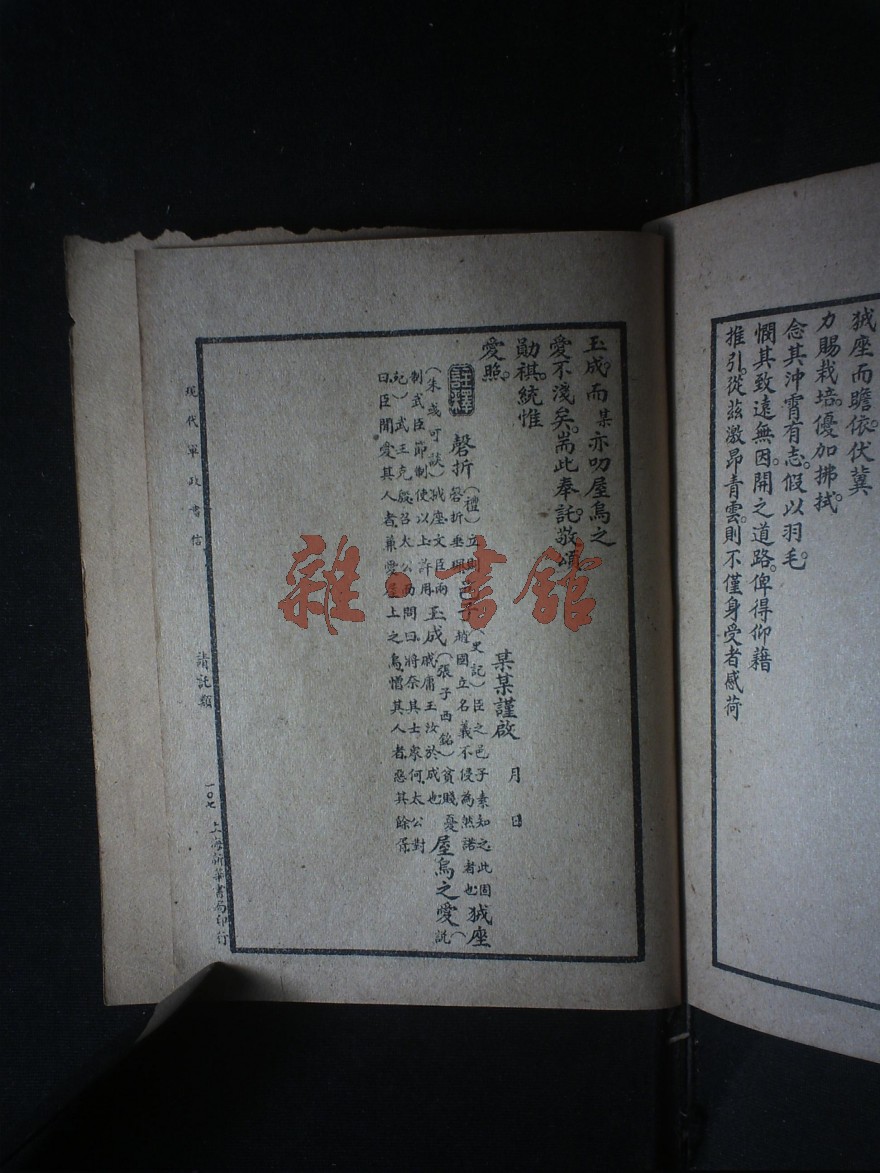 狨座而瞻依。伏冀
力賜栽培。優加拂拭。
念其沖霄有志。假以羽毛。
憫其致遠無因。開之道路。俾得仰藉
推引。從茲激昂青雲。則不僅身受者感荷
玉成。而某亦叨屋烏之
愛不淺矣。耑此奉託。敬頌
勛祺。統惟
愛照。
某某謹啟 月 日
註釋
磬折（禮）立則磬折垂
（史記）臣之邑子素知之此固
趙國立名義不侵為然諾者也
狨座
（朱彧可談）狨座文臣兩
制武臣節制使以上許用
玉成（張子西銘）貧賤憂
戚庸玉汝於成也
屋烏之愛（說
紀）武王克殷召太公而問曰將奈其士眾何太公對
曰臣聞愛其人者兼愛屋上之烏憎其人者惡其餘胥
現代軍政書信
請託類
一〇七
上海新華書局印行
雜·書館